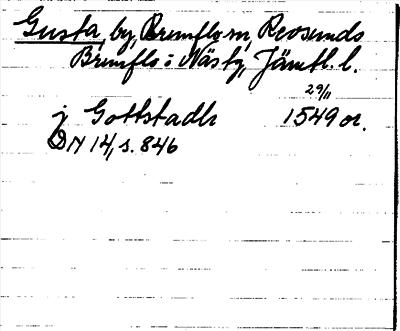 Gusta, by, Brunflo sn, Revsunds
Brunflo i Näs tg, Jämtl. l.
29/11
j Gottstadh 1549 or.
DN 14, s. 846